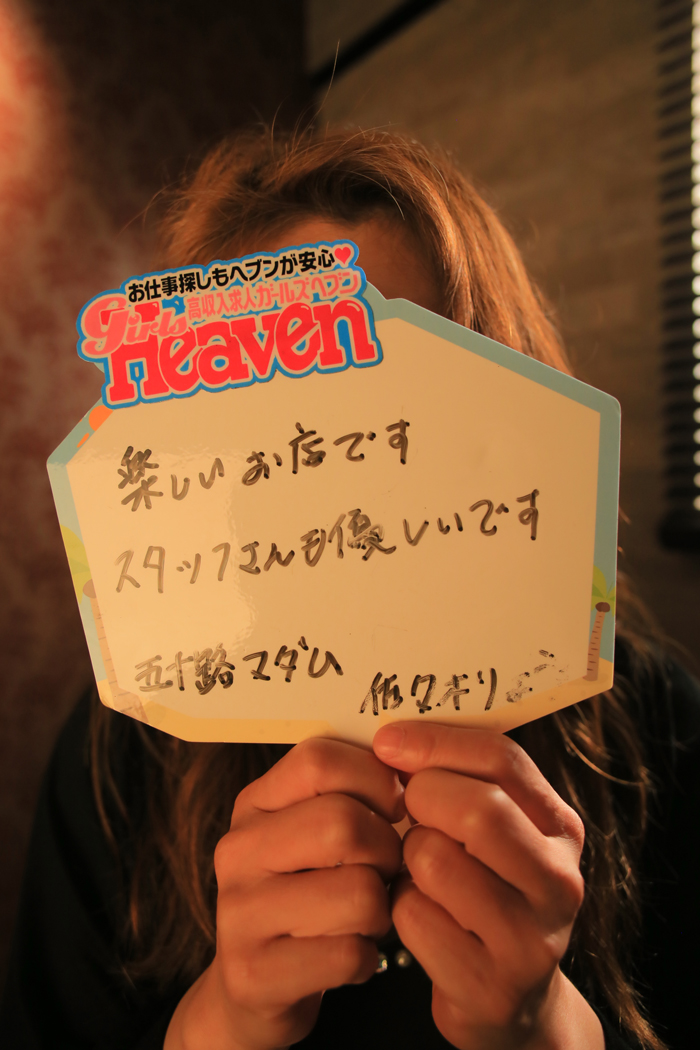 お仕事探しもヘブンが安心♥
高収入求人ガールズヘブン
Girls
Heaven
楽しいお店です
スタッフさんも優しいです
五十路マダム
佐々木りょう